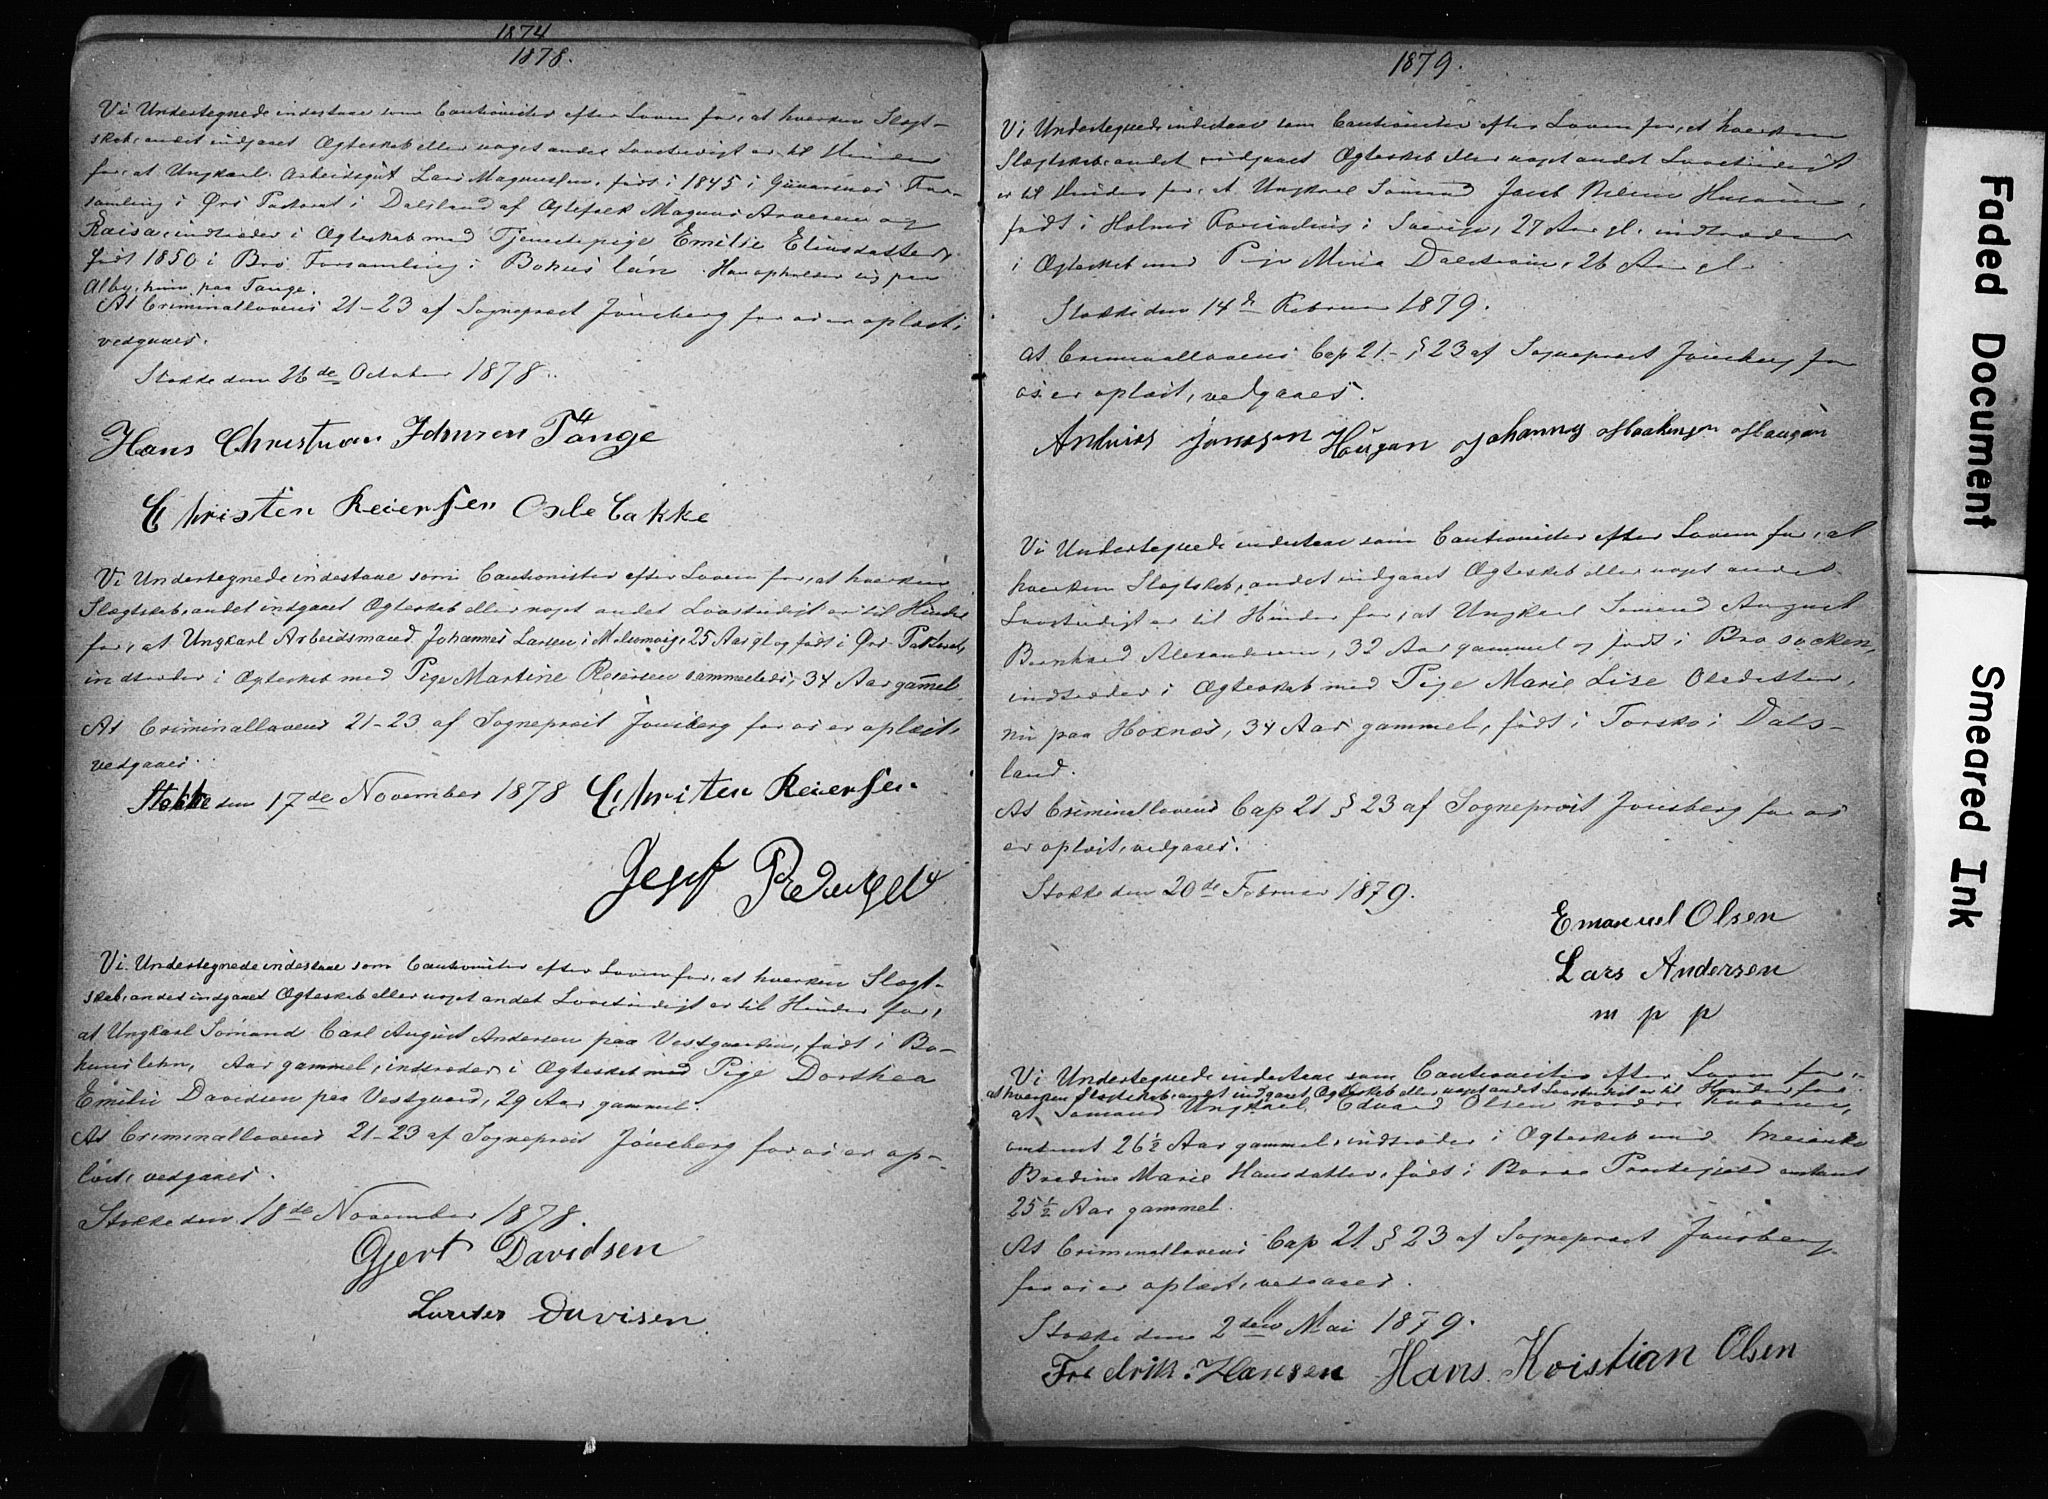 1874
1878.
Vi Undertegnede indestaae som Cautionister efter Loven for, at hverken Slægt-
skab, andet indgaaet Ægteskab eller noget andet Lovstridigt er til Hinder
for, at Ungkarl Arbeidsgut Lars Magnussen, født i 1845 i Gunarsnæs For-
samling i Ørs Pastorat i Dalsland af Ægtefolk Magnus og
Kaisa, indtræder i Ægteskab med Tjenestepige Emilie Eliasdatter,
født 1850 i Bro Forsamling i Bohus län. Han opholder sig paa
Alby, hun paa Tange.
At Criminallovens 21-23 af Sogneprest Jönsberg for os er oplæst,
vedgaaes.
Stokke den 26de October 1878.
Hans Christian Johnsen Tange
Christen Reiersen Oxle bakke
Vi Undertegnede indestaae som Cautionister efter Loven for, at hverken
Slægtskab, andet indgaaet Ægteskab eller noget andet Lovstridigt er til Hinder
for, at Ungkarl Arbeidsmand Johannes Larsen i Melsomvig, 25 Aar gl og født i Ørs Pastorat,
indtræder i Ægteskab med Pige Martine Reiersen sammesteds, 34 Aar gammel
At Criminallovens 21-23 af Sogneprest Jönsberg for os er oplæst,
vedgaaes.
Stokke den 17de November 1878 Christen Reiersen
Vi Undertegnede indestaae som Cautionister efter Loven for, at hverken Slægt-
skab, andet indgaaet Ægteskab eller noget andet Lovstridigt er til Hinder for,
at Ungkarl Sømand Carl August Andersen paa Vestgaarden, født i Bo-
huuslehn, Aar gammel, indtræder i Ægteskab med Pige Dorthea
Emilie Davidsen paa Vestgaard, 29 Aar gammel.
At Criminallovens 21-23 af Sogneprest Jönsberg for os er op-
læst, vedgaaes.
Stokke den 18de November 1878.
Gjert Davidsen
Davisen
1879.
Vi Undertegnede indestaae som Cautionister efter Loven for, at hverken
Slægtskab, andet indgaaet Ægteskab eller noget andet Lovstridigt
er til Hinder for, at Ungkarl Sømand Jacob
født i Holms i Sverige, 27 Aar gl. indtræder
i Ægteskab med Pige Mina 26 Aar gl.
Stokke den 14de Februar 1879.
At Criminallovens Cap 21 - § 23 af Sogneprest Jönsberg for
os er oplæst, vedgaaes.
Anders Jonassen Haugan Johannes Haagensen Haugan
Vi Undertegnede indestaae som Cautionister efter Loven for, at
hverken Slægtskab, andet indgaaet Ægteskab eller noget andet
Lovstridigt er til Hinder for, at Ungkarl Sømand August
Bernhard Alexandersen, 32 Aar gammel og født i Bro socken,
indtræder i Ægteskab med Pige Marie Lise Olesdatter,
nu paa Hoxnæs, 34 Aar gammel, født i Torsko i Dals-
land.
At Criminallovens Cap 21 § 23 af Sogneprest Jönsberg for os
er oplæst, vedgaaes.
Stokke den 20de Februar 1879.
Emanuel Olsen
Lars Andersen
m p p
Vi Undertegnede indestaae som Cautionister efter Loven for,
at hverken Slægtskab, andet indgaaet Ægteskab eller noget andet Lovstridigt er til Hinder for
at Sømand Ungkarl Edvard Olsen nordre
omtrent 26 ½ Aar gammel, indtræder i Ægteskab med
Bredine Marie Hansdatter, født i Borre Præstegjeld omtrent
25 ½ Aar gammel.
At Criminallovens Cap 21 § 23 af Sogneprest Jönsberg
for os er oplæst, vedgaaes.
Stokke den 2den Mai 1879.
Fredrik Hansen Hans Kristian Olsen
Faded Document
Smeared Ink